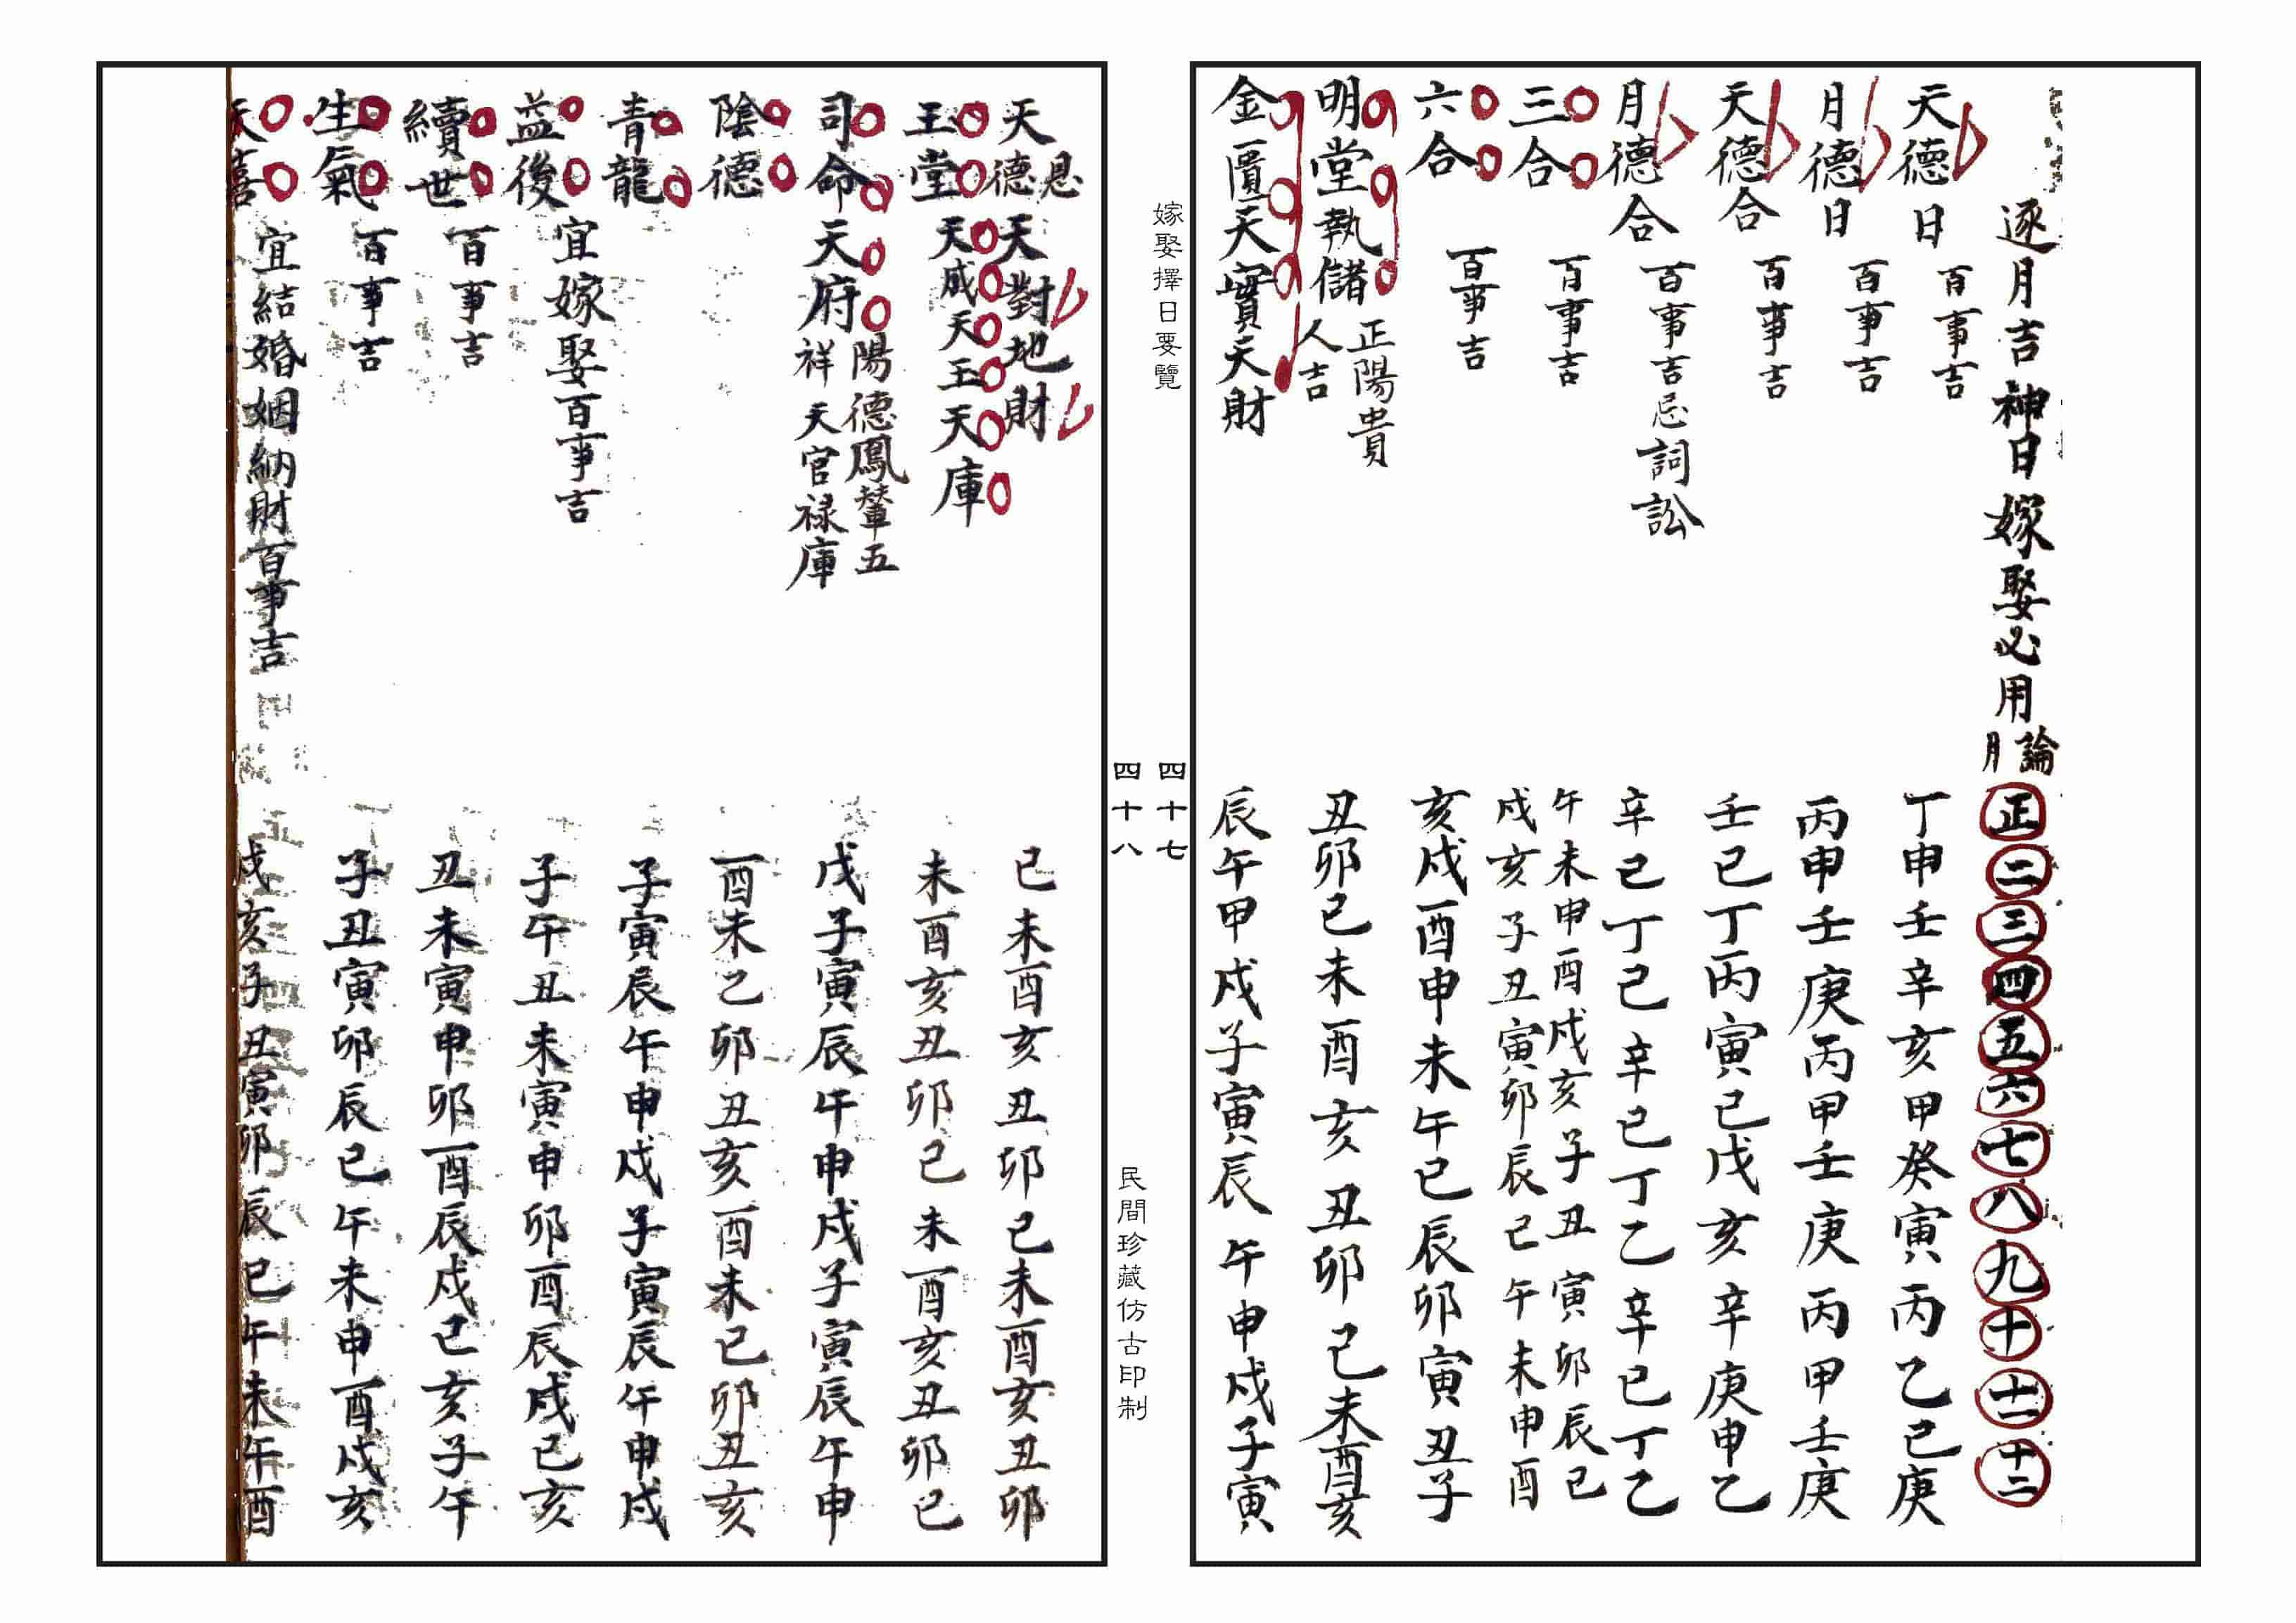 逐月吉神日嫁娶必用論月 正 二 三 四 五 六 七 八 九 十 十一 十二
天德日 百事吉 丁申壬辛亥甲癸寅丙乙巳庚
月德日 百事吉 丙申壬庚丙甲壬庚丙甲壬庚
天德合 百事吉 壬巳丁丙寅己戊亥辛庚申乙
月德合 百事吉忌詞訟 辛己丁己辛己丁乙辛己丁乙
三合 百事吉 午未申酉戌亥子丑寅卯辰巳
戌亥子丑寅卯辰巳午未申酉
六合 百事吉 亥戌酉申未午巳辰卯寅丑子
明堂執儲 正陽貴
人吉 丑卯巳未酉亥丑卯巳未酉亥
金匱天寶天財 辰午申戌子寅辰午申戌子寅
嫁娶擇日要覽
四十七
四十八
民間珍藏仿古印制
天德恩天對地財 巳未酉亥丑卯巳未酉亥丑卯
玉堂天成天玉天庫 未酉亥丑卯巳未酉亥丑卯巳
司命天府 陽德鳳輦五
祥天官祿庫 戌子寅辰午申戌子寅辰午申
陰德 酉未巳卯丑亥酉未巳卯丑亥
青龍 子寅辰午申戌子寅辰午申戌
益後 宜嫁娶百事吉 子午丑未寅申卯酉辰戌巳亥
續世 百事吉 丑未寅申卯酉辰戌巳亥子午
生氣 百事吉 子丑寅卯辰巳午未申酉戌亥
天喜 宜結婚姻納財百事吉 戌亥子丑寅卯辰巳午未午酉